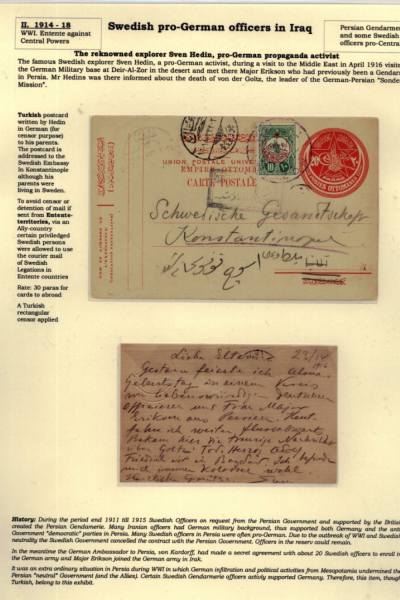 II. 1914 - 18
WWI. Entente against
Central Powers
Swedish pro-German officers in Iraq
Persian Gendarme
and some Swedish
officers pro-Centra
The reknowned explorer Sven Hedin, pro-German propaganda activist
The famous Swedish explorer Sven Hedin, a pro-German activist, during a visit to the Middle East in April 1916 visite
the German Military base at Deir-Al-Zor in the desert and met there Major Erikson who had previously been a Gendar
in Persia. Mr Hedins was there informed about the death of von der Goltz, the leader of the German-Persian "Sonde
Mission".
Turkish postcard
written by Hedin
in German (for
censor purpose)
to his parents.
The postcard is
addressed to the
Swedish Embassy
In Konstantinople
although his
parents were
living in Sweden.
To avoid censor or
detention of mail if
sent from Entente-
territories, via an
Ally-country
certain priviledged
Swedish persons
were allowed to use
the courier mail
of Swedish
Legations in
Entente countries
Rate: 30 paras for
cards to abroad
A Turkish
rectangular
censor applied
UNION POSTALE UNIVE
EMPIRE OTTOMA
CARTE POSTALE
10
20
POSTES OTTOMANES
Schwedische Gesandtschaft
Konstantinopel
Liebe Eltern
23/4
1916
Gestern feierte ich Almas
Geburtstag in einem Kreis
von liebenswürdigen deutschen
Offizieren und Frau Major
Erikson aus Persien. Heut
fahre ich weiter flussabwärts
Bekam hier die traurige Nachricht
über Goltz' Tod. Herzog Adolf
Friedrich ist in Bagdad. Ich befinde
mich immer kolossal wohl.
Herzliche Grüsse. Sven
History: During the period end 1911 till 1915 Swedish Officers on request from the Persian Government and supported by the British
created the Persian Gendarmerie. Many Iranian officers had German military background, thus supported both Germany and the anti
Government "democratic" parties in Persia. Many Swedish officers in Persia were often pro-German. Due to the outbreak of WWI and Swedish
neutrality the Swedish Government cancelled the contract with the Persian Government. Officers in the reserv could remain.
In the meantime the German Ambassador to Persia, von Kardorff, had made a secret agreement with about 20 Swedish officers to enroll in
the German army and Major Erikson joined the German army in Irak.
It was an extra ordinary situation in Persia during WWI in which German infiltration and political activities from Mesopotamia undermined the
Persian "neutral" Government (and the Allies). Certain Swedish Gendarmerie officers activly suported Germany. Therefore, this item, though
Turkish, belong to this exhibit.